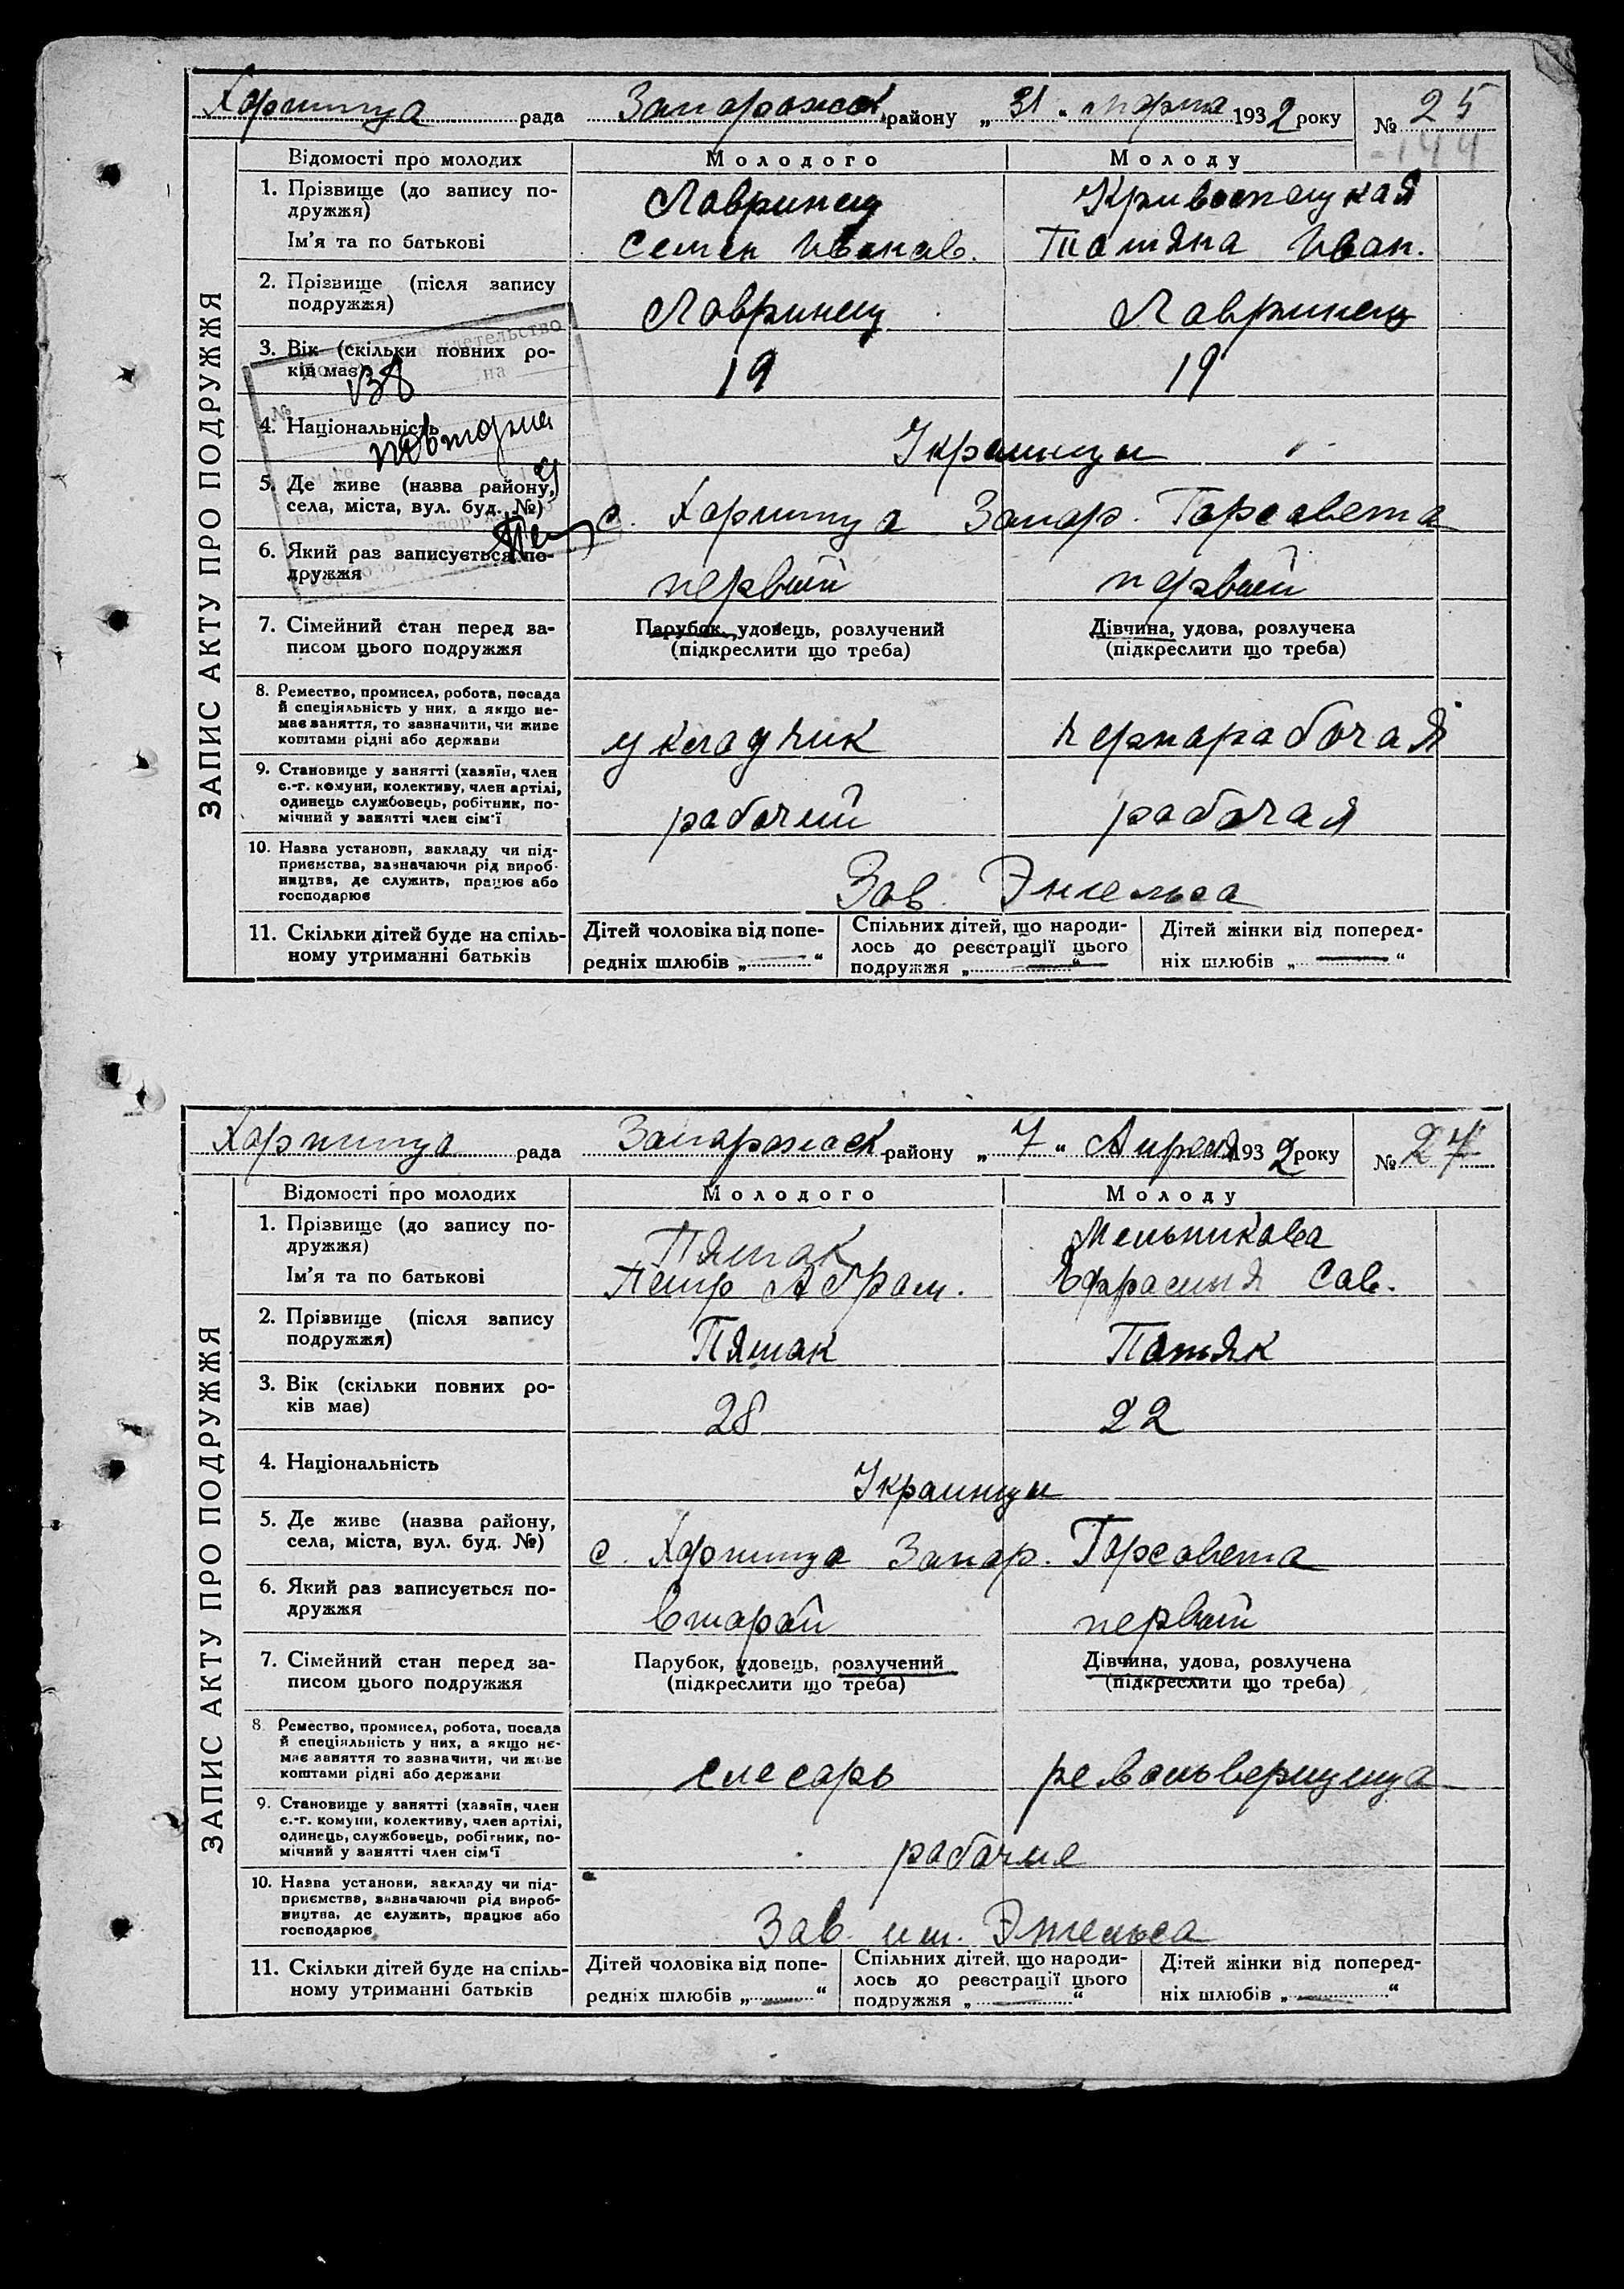 Хортица рада Запорожск району „31“ Марта 1932 року № 25
Відомості про молодих Молодого Молоду
ЗАПИС АКТУ ПРО ПОДРУЖЖЯ
1. Прізвище (до запису по- Лавринец
дружжя)
Ім'я та по батькові Семен Иванов. Татяна Иван.
2. Прізвище (після запису
подружжя) Лавринец Лавринец
3. Вік (скільки повних ро-
ків має) 19 19
повторна
4. Національність Украинцы
5. Де живе (назва району,
села, міста, вул. буд. №) с. Хортица Запор. Горсовета
6. Який раз записується по-
дружжя первий первый
7. Сімейний стан перед за- Парубок, удовець, розлучений Дівчина, удова, розлучека
писом цього подружжя (підкреслити що треба) (підкреслити що треба)
8. Ремество, промисел, робота, посада
й спеціяльність у них, а якщо не-
має заняття, то зазначити, чи живе
коштами рідні або держави укладчик чернорабочая
9. Становище у занятті (хазяїн, член
с.-г. комуни, колективу, член артілі,
одинець службовець, робітник, по-
мічний у занятті член сім'ї рабочий рабочая
10. Назва установи, закладу чи під-
приємства, зазначаючи рід вироб-
ництва, де служить, працює або
господарює Зав. Энгельса
11. Скільки дітей буде на спіль- Дітей чоловіка від попе- Спільних дітей, що народи- Дітей жінки від поперед-
ному утриманні батьків редніх шлюбів „—“ лось до реєстрації цього ніх шлюбів „—“
подружжя „—“
Хортица рада Запорожск району „7“ Апреля 1932 року № 27
Відомості про молодих Молодого Молоду
ЗАПИС АКТУ ПРО ПОДРУЖЖЯ
1. Прізвище (до запису по- Мельникова
дружжя)
Ім'я та по батькові Петр Абрам. Сав.
2. Прізвище (після запису
подружжя)
3. Вік (скільки повних ро-
ків має) 28 22
4. Національність Украинцы
5. Де живе (назва району,
села, міста, вул. буд. №) с. Хортица Запор. Горсовета
6. Який раз записується по-
дружжя второй первый
7. Сімейний стан перед за- Парубок, удовець, розлучений Дівчина, удова, розлучена
писом цього подружжя (підкреслити що треба) (підкреслити що треба)
8. Ремество, промисел, робота, посада
й спеціяльність у них, а якщо не-
має заняття то зазначити, чи живе
коштами рідні або держави слесарь револьверщица
9. Становище у занятті (хазяїн, член
с.-г. комуни, колективу, член артілі,
одинець, службовець, робітник, по-
мічний у занятті член сім'ї рабочие
10. Назва установи, закладу чи під-
приємства, зазначаючи рід вироб-
ництва, де служить, працює або
господарює Зав. им. Энгельса
11. Скільки дітей буде на спіль- Дітей чоловіка від попе- Спільних дітей, що народи- Дітей жінки від поперед-
ному утриманні батьків редніх шлюбів „—“ лось до реєстрації цього ніх шлюбів „—“
подружжя „—“